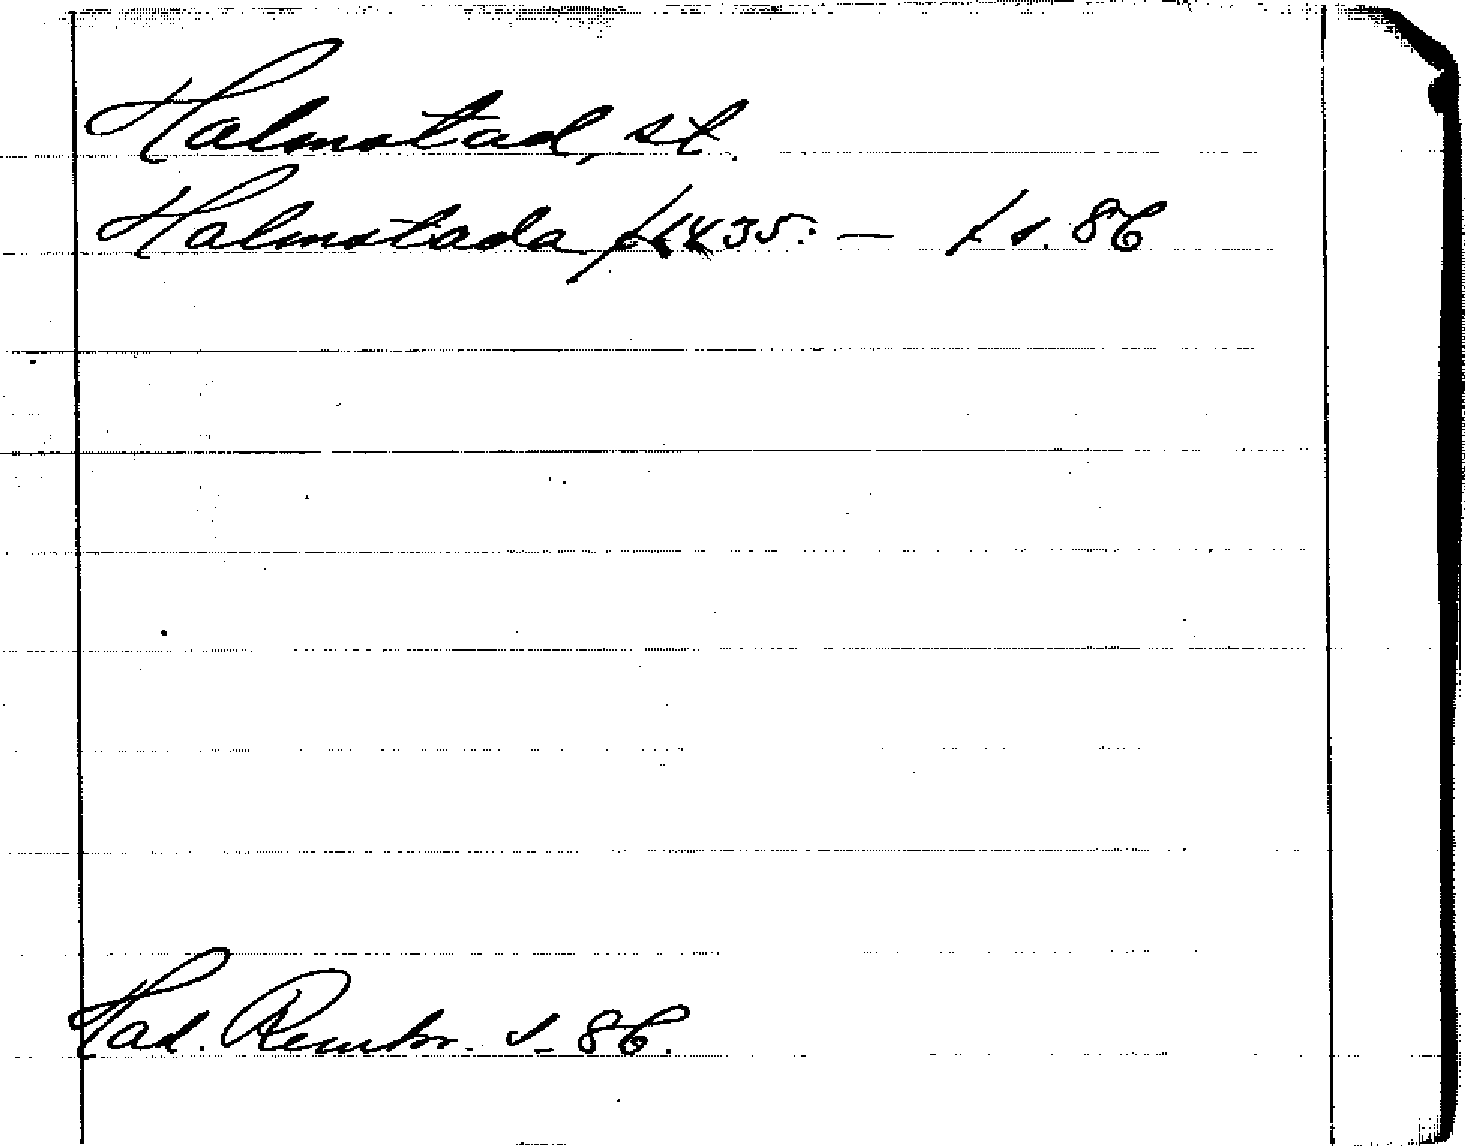 Halmstad, st.
Halmstada 1435: — s. 86
Had. Rembr. s. 86.